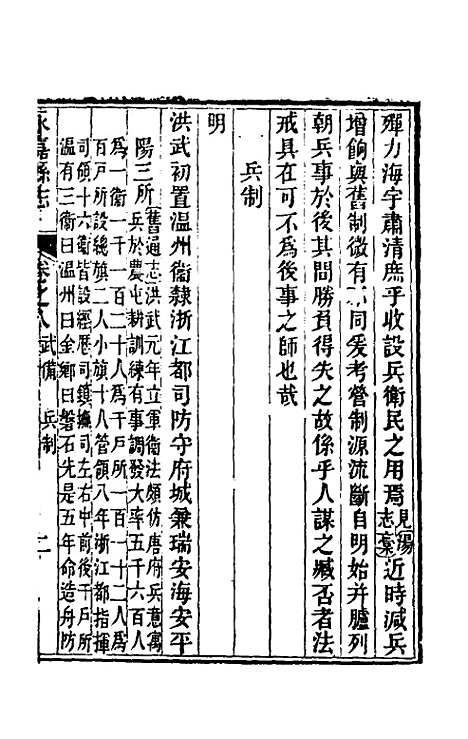 殫力海宇肅清庶乎收設兵衛民之用焉見湯志稾近時減兵
增餉與舊制微有不同爰考營制源流斷自明始并臚列
朝兵事於後其間勝負得失之故係乎人謀之臧否者法
戒具在可不為後事之師也哉
兵制
明
洪武初置温州衛隸浙江都司防守府城兼瑞安海安平
陽三所舊通志洪武元年立軍衛法頗仿唐府兵意寓
兵於農屯耕訓練有事調發大率五千六百人
為一衛一千一百二十人為千戶所一百一十二人為
百戶所設總旗二人小旗十人管領八年浙江都指揮
司領十六衛皆設經歷司鎮撫司左右中前後千戶所
温有三衛曰温州曰金鄉曰磐石先是五年命造舟防
永嘉縣志 卷之八 武備 兵制 二